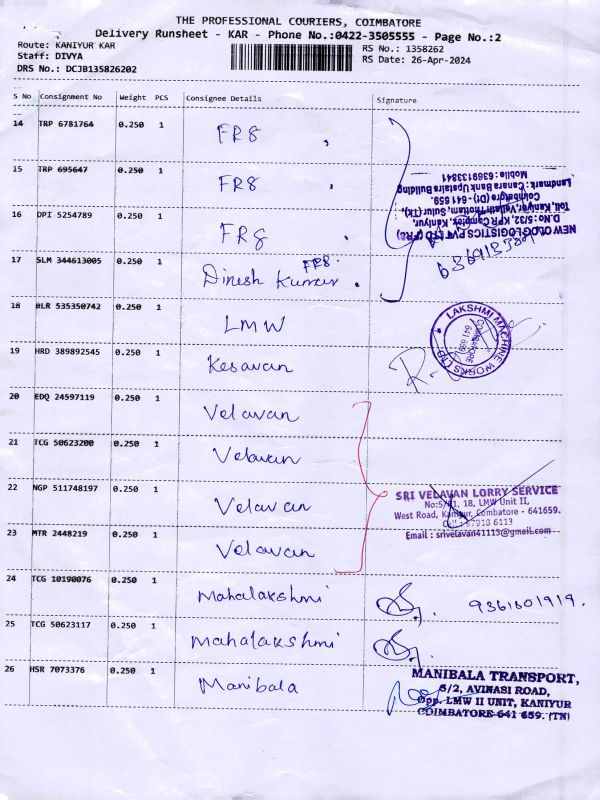 THE PROFESSIONAL COURIERS, COIMBATORE
Delivery Runsheet - KAR - Phone No.:0422-3505555 - Page No.:2
Route: KANIYUR KAR
RS No.: 1358262
Staff: DIVYA
RS Date: 26-Apr-2024
DRS No.: DCJB135826202
S No Consignment No Weight PCS Consignee Details Signature
14 TRP 6781764 0.250 1 FR8
15 TRP 695647 0.250 1 FR8
Mobile : 6369133841
Landmark : Canara Bank Upstairs Building
Coimbatore (Dt) - 641 659.
16 DPI 5254789 0.250 1 FR8
D.No: 5/32, KPR Complex, Kaniyur,
NEW OLOG LOGISTICS PVT LTD (FR8)
17 SLM 344613005 0.250 1 Dinesh Kumar FR8.
18 BLR 535350742 0.250 1 LMW
LAKSHMI MACHINE WORKS LTD
COIMBATORE
641 659
19 HRD 389892545 0.250 1 Kesavan
20 EDQ 24597119 0.250 1 Velavan
21 TCG 50623200 0.250 1 Velavan
22 NGP 511748197 0.250 1 Velavan
SRI VELAVAN LORRY SERVICE
18, LMW Unit II,
West Road, Kaniyur, Combatore - 641659.
23 MTR 2448219 0.250 1 Velavan
Email : srivelavan41113@gmail.com
24 TCG 10190076 0.250 1 Mahalakshmi 9361601919.
25 TCG 50623117 0.250 1 Mahalakshmi
26 HSR 7073376 0.250 1 Manibala
MANIBALA TRANSPORT,
5/2, AVINASI ROAD,
Opp. LMW II UNIT, KANIYUR
COIMBATORE 641 659. (TN)